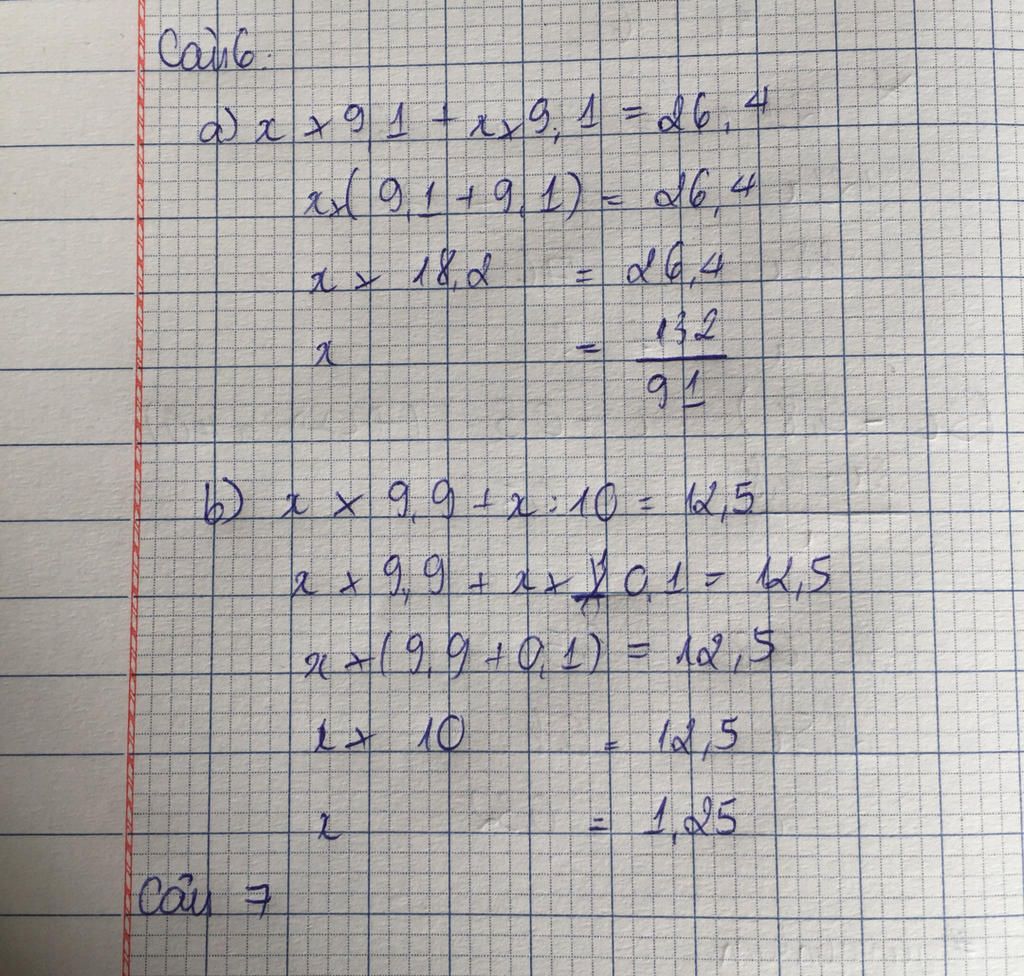 Câu 6:
a) x × 9,1 + x × 9,1 = 26,4
x × ( 9,1 + 9,1 ) = 26,4
x × 18,2 = 26,4
x = 132/91
b) x × 9,9 + x : 10 = 12,5
x × 9,9 + x × 0,1 = 12,5
x × ( 9,9 + 0,1 ) = 12,5
x × 10 = 12,5
x = 1,25
Câu 7